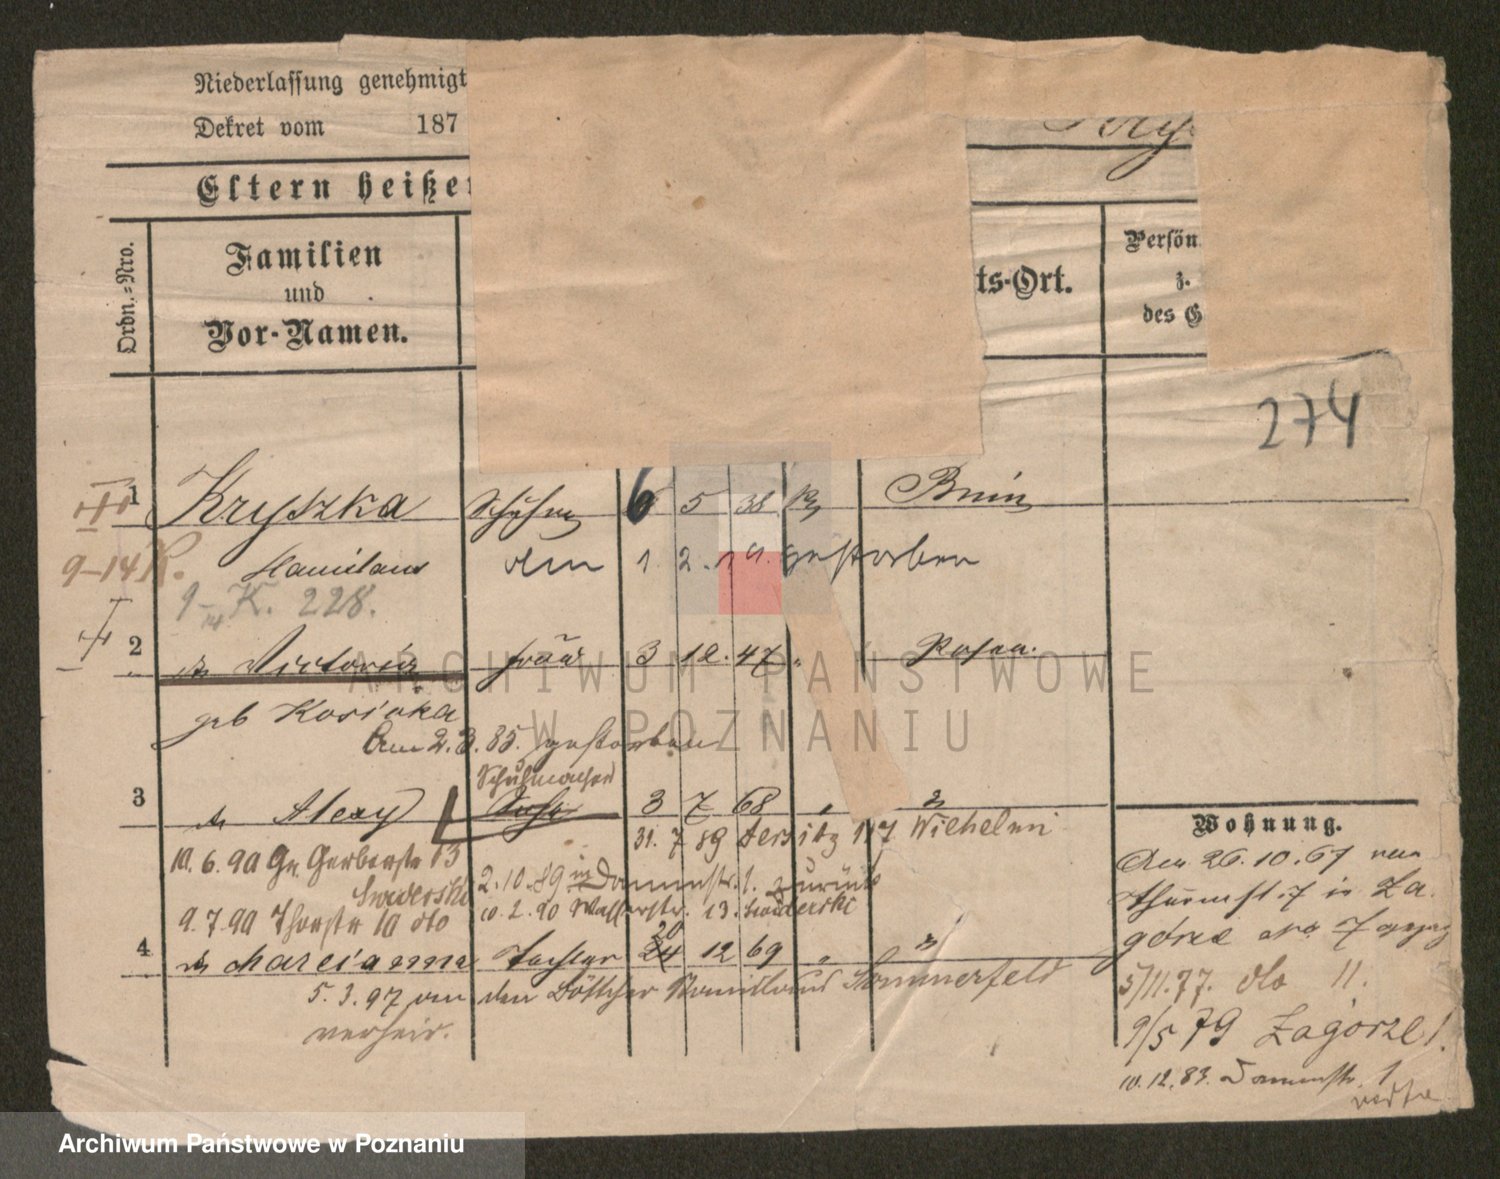 Niederlassung genehmigt
Dekret vom 187
Eltern heißen
Ordn.-Nro.
Familien
und
Vor-Namen.
ts-Ort.
Persön
z.
des G
274
1 Kryszka 6 5 38 Bnin
Stanislaus den 1. 2. 19. gestorben
9-14 K.
9-14 K. 228.
2 Victoria Frau 3 12. 47 " Posen.
geb Kosicka
Am 2. 3. 85. gestorben
Schuhmacher
3 Alexy Sohn 3 7 68 "
31. 7 89 Jersitz 117 Wilhelmi
10. 6. 90 Gr. Gerberstr 13
Swiderski
2. 10. 89 in Dammstr. 1. zurück
10. 2. 90 Wasserstr. 13. Swiderski
9. 7. 90 Thorstr 10 dto
20
4 Marcianna Tochter 24 12 69 "
5. 3. 97 an den Böttcher Stanislaus Sommerfeld
verheir.
Wohnung.
Am 26. 10. 67 von
Thurmst. 7 in Za
górze No. 7
5/11. 77. dto 11.
9/5 79 Zagorze 1.
10. 12. 83. Dammstr. 1
ARCHIWUM PAŃSTWOWE
W POZNANIU
Archiwum Państwowe w Poznaniu